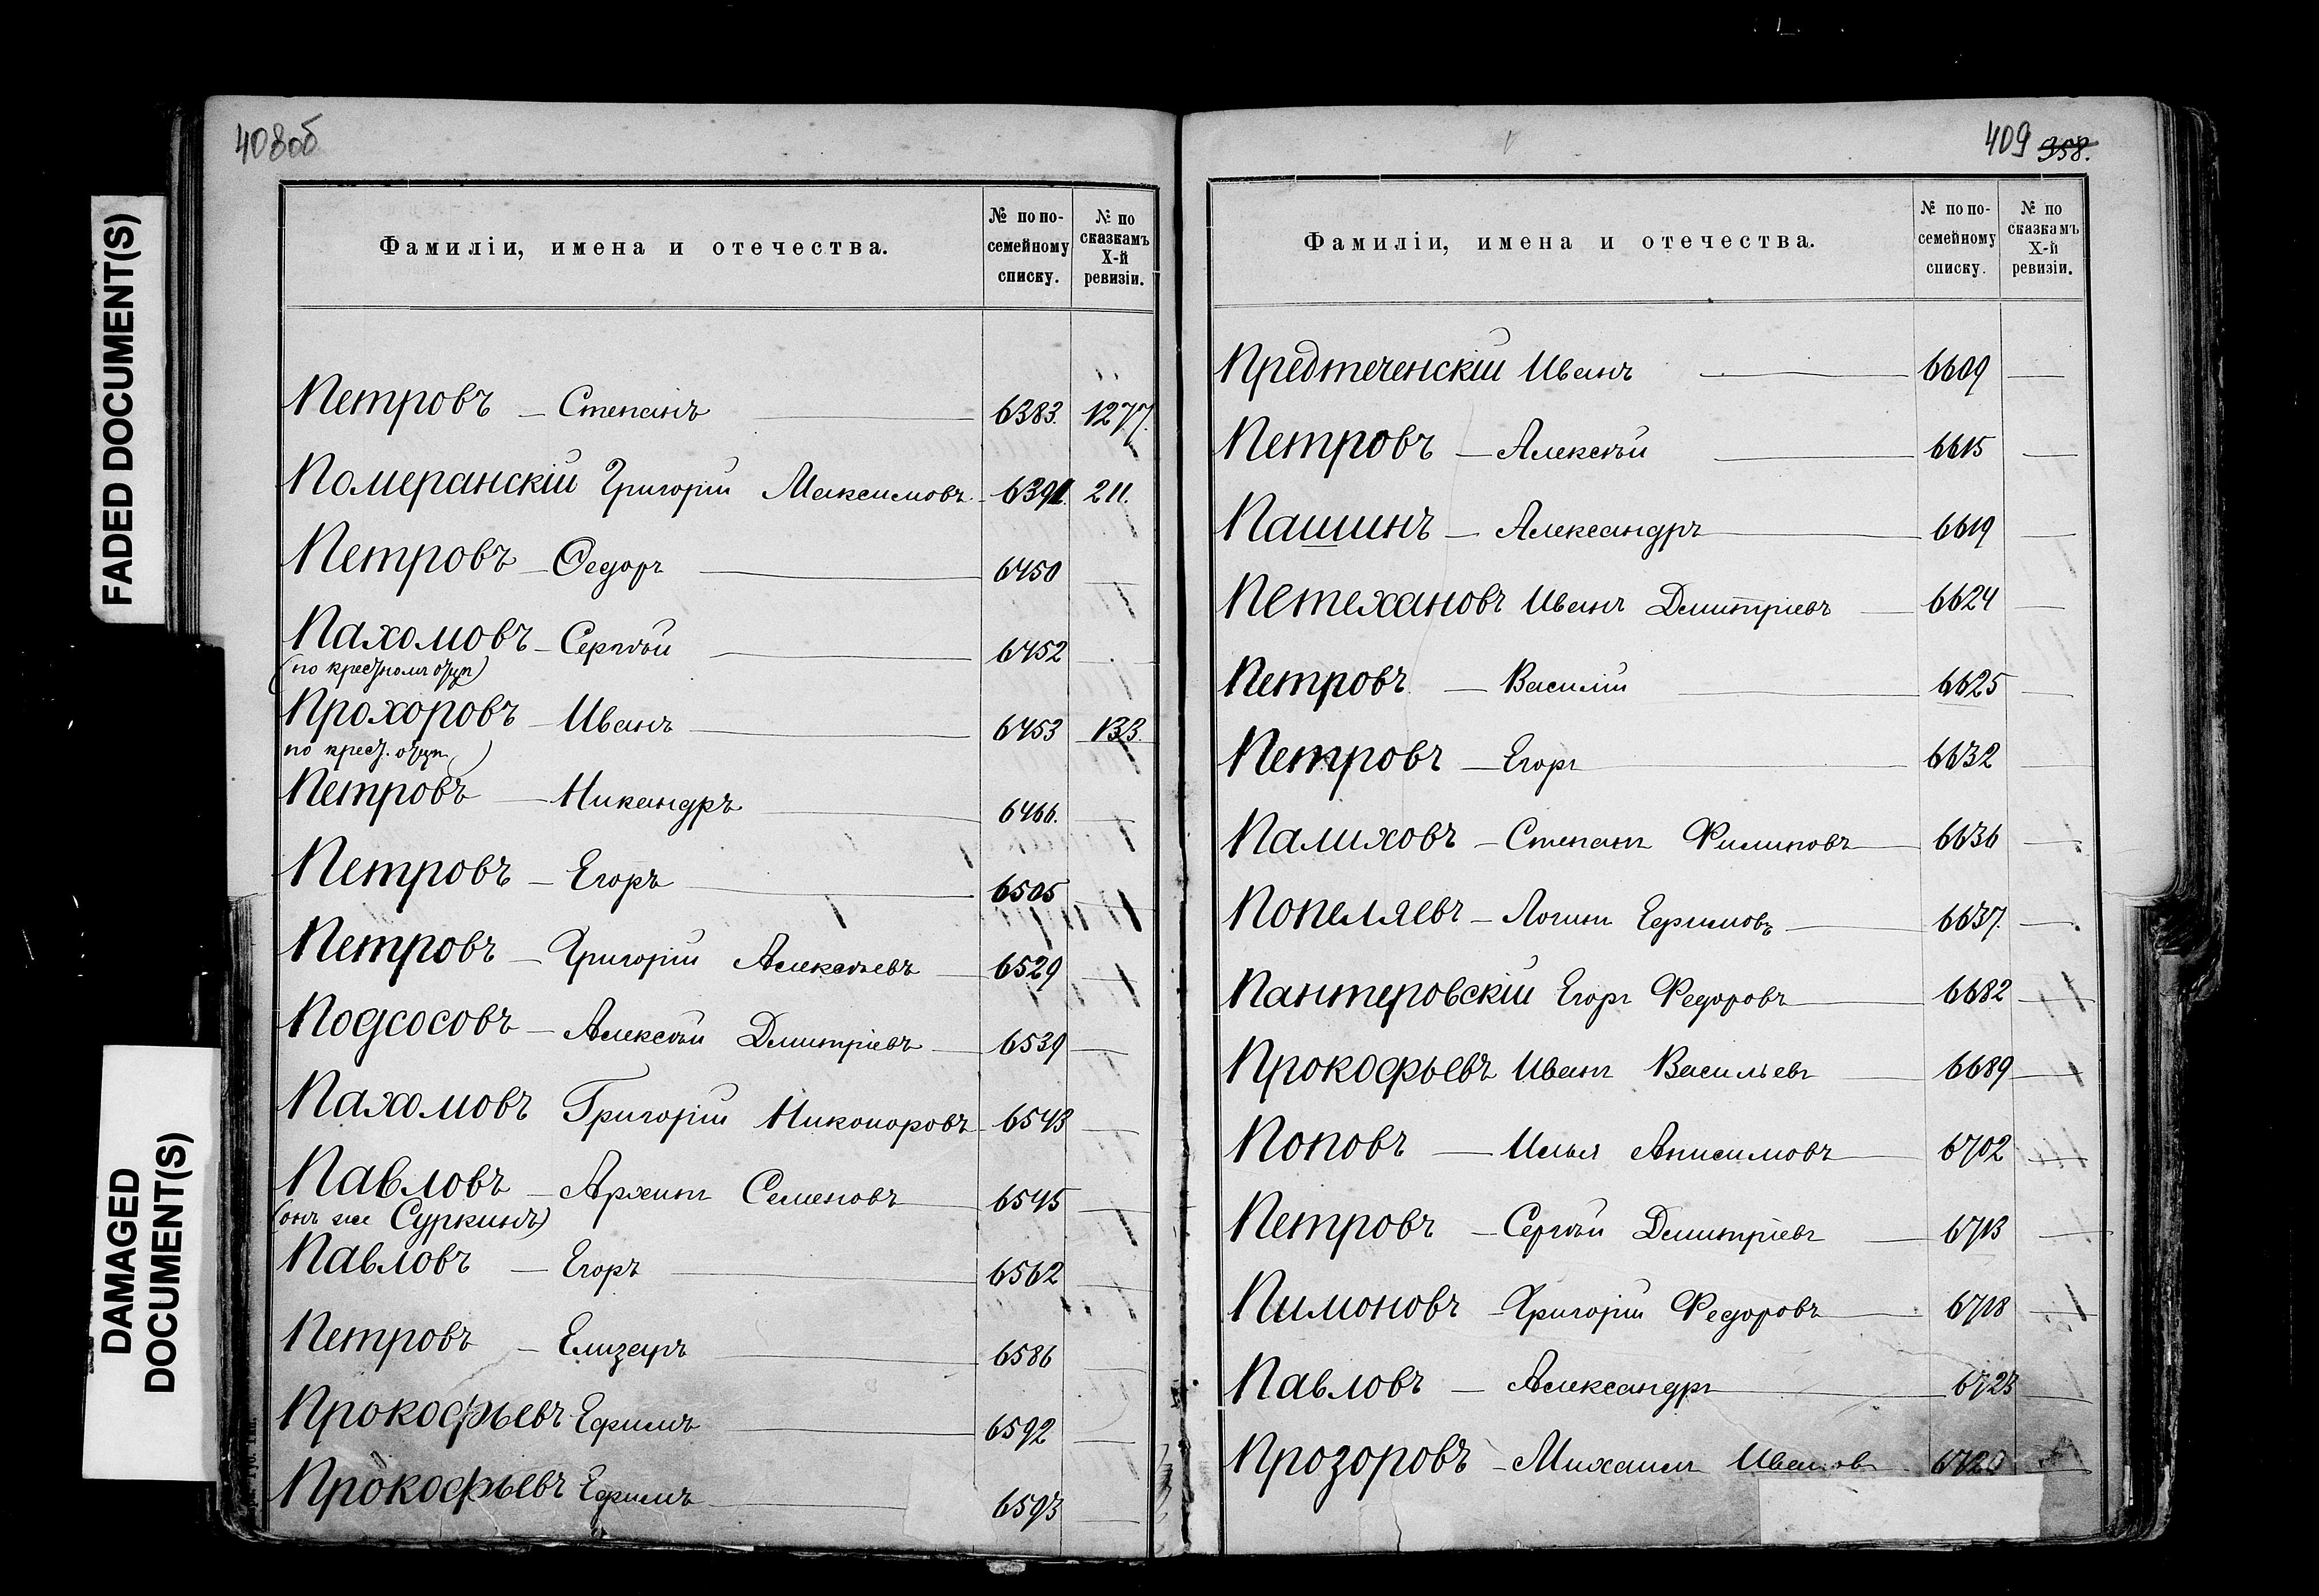 408об
Фамиліи, имена и отечества.
№ по по-
семейному
списку.
№ по
сказкамъ
X-й
ревизіи.
Петровъ — Степанъ — 6383. 1277.
Померанскій Григорій Максимовъ — 6391. 211.
Петровъ — Ѳедоръ — 6450 —
Пахомовъ — Сергѣй — 6452
Прохоровъ — Иванъ — 6453 133.
Петровъ — Никандръ — 6466. —
Петровъ — Егоръ — 6505 —
Петровъ — Григорій Алексѣевъ — 6529 —
Подсосовъ — Алексѣй Дмитріевъ — 6539 —
Пахомовъ Григорій Никоноровъ — 6543 —
Павловъ — Архипъ Семеновъ — 6545 —
(онъ же Суркинъ)
Павловъ — Егоръ — 6562 —
Петровъ — Елизаръ — 6586 —
Прокофьевъ Ефимъ — 6592 —
Прокофьевъ Ефимъ — 6593 —
409 358.
Фамиліи, имена и отечества.
№ по по-
семейному
списку.
№ по
сказкамъ
X-й
ревизіи.
Предтеченскій Иванъ — 6609 —
Петровъ — Алексѣй — 6615 —
Пашинъ — Александръ — 6619 —
Петехановъ Иванъ Дмитріевъ — 6624 —
Петровъ — Василій — 6625 —
Петровъ — Егоръ — 6632 —
Палиховъ — Степанъ Филиповъ — 6636 —
Попеляевъ — Логинъ Ефимовъ — 6637. —
Пантеровскій Егоръ Федоровъ — 6682 —
Прокофьевъ Иванъ Васильевъ — 6689 —
Поповъ — Илья Анисимовъ — 6702 —
Петровъ — Сергѣй Дмитріевъ — 6713 —
Пимоновъ — Григорій Федоровъ — 6718 —
Павловъ — Александръ — 6723 —
Прозоровъ — Михаилъ Иванов —
FADED DOCUMENT(S)
DAMAGED
DOCUMENT(S)